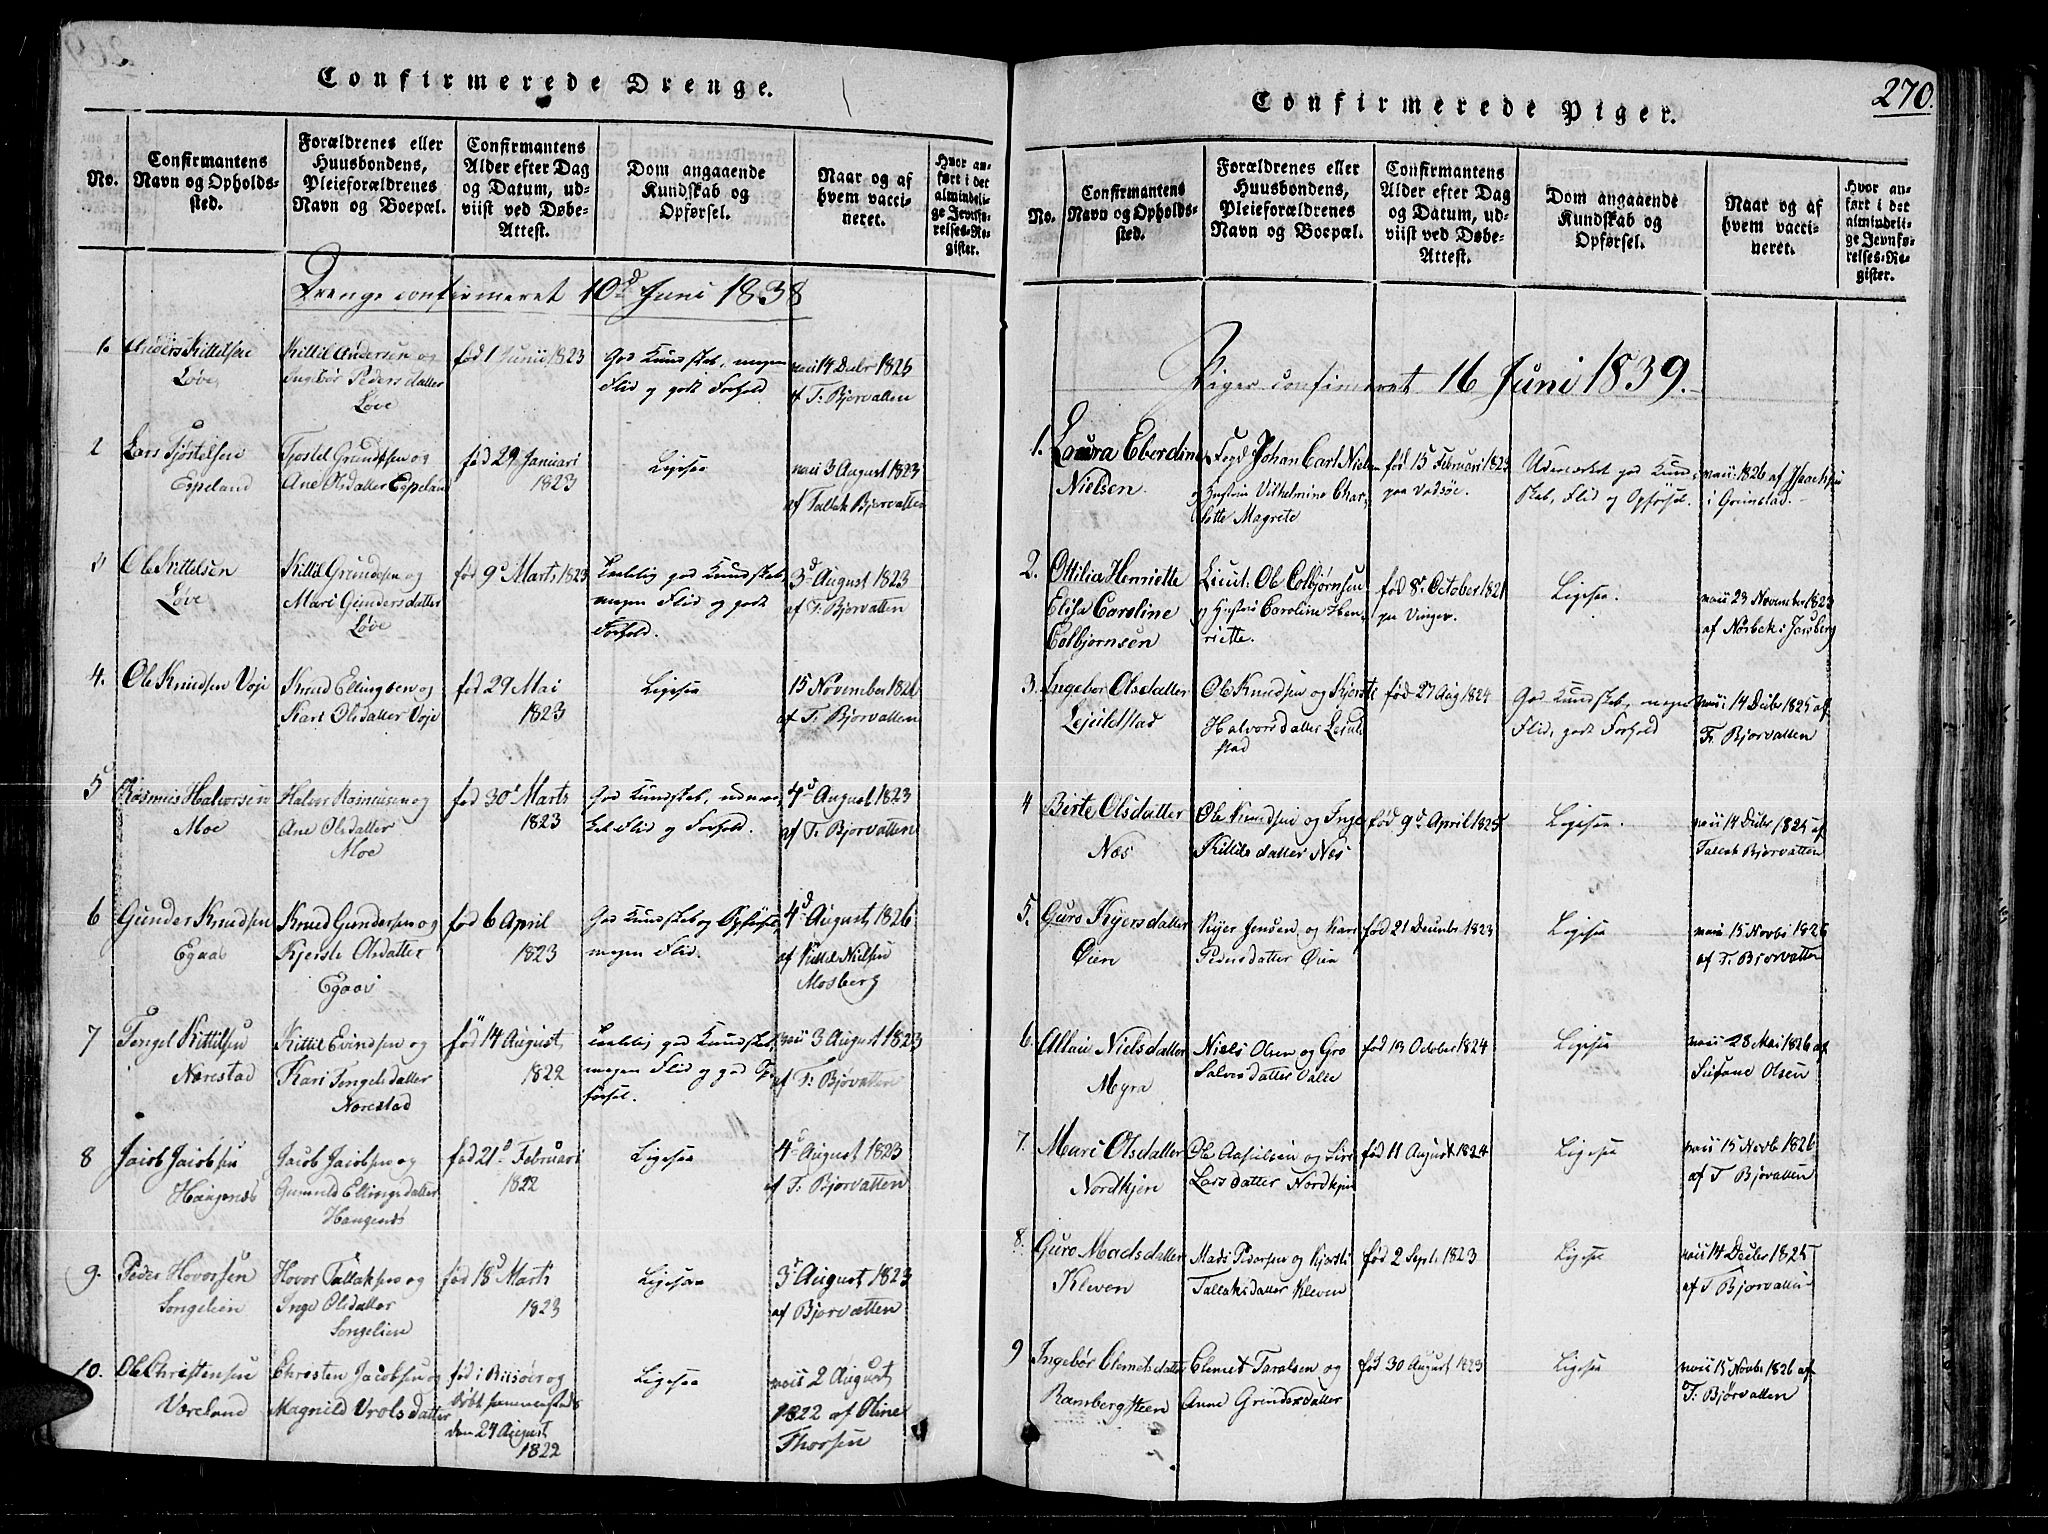 Confirmerede Drenge.
No.
Confirmantens
Navn og Opholds-
sted.
Forældrenes eller
Huusbondens,
Pleieforældrenes
Navn og Boepæl.
Confirmantens
Alder efter Dag
og Datum, ud-
viist ved Døbe-
Attest.
Dom angaaende
Kundskab og
Opførsel.
Naar og af
hvem vacci-
neret.
Hvor an-
ført i det
almindeli-
ge Jevnfø-
relses-Re-
gister.
Drenge confirmeret 10d Juni 1838
1.
Anders Kittelsen
Løve
Kittil Andersen og
Ingebor Pedersdatter
Løve
fød 1 Junii 1823
God Kundskab, megen
Flid og godt Forhold
14 Decbr 1826
af T. Bjorvatten
2
Lars Tjøstelsen
Espeland
Tjostel Gundersen og
Ane Olsdatter Espeland
fød 29 Januari
1823
Ligesaa
3 August 1823
af Tallak Bjorvatten
3
Ole Kittelsen
Løve
Kittil Gundersen og
Mari Gundersdatter
Løve
fød 9d Marts 1823
god Kundskab,
megen Flid og godt
Forhold.
3d August 1823
af T. Bjorvatten
4.
Ole Knudsen Voje
Knud Ellingsen og
Kari Olsdatter Voje
fød 29 Mai
1823
Ligesaa
15 November 1826
af T. Bjorvatten
5
Rasmus Halvorsen
Moe
Halvor Rasmusen og
Ane Olsdatter
Moe
fød 30d Marts
1823
God Kundskab, udmær-
ket Flid og Forhold.
4d August 1823
af T. Bjorvatten
6
Gunder Knudsen
Egaas
Knud Gundersen og
Kjerste Olsdatter
Egaas
fød 6 April
1823
God Kundskab og Opførsel,
megen Flid.
4d August 1826
af Kittil Nielsen
Mosberg
7
Tengel Kittilsen
Narestad
Kittil Evindsen og
Kari Tengelsdatter
Narestad
fød 14 August
1822
god Kundskab,
megen Flid og god Op-
førsel.
3 August 1823
af T. Bjorvatten
8
Jacob Jacobsen
Haugenæs
Jacob Jacobsen og
Gunnild Ellingsdatter
Haugenæs
fød 21d Februari
1822
Ligesaa
4d August 1823
af T. Bjorvatten
9.
Peder Hovorsen
Songelien
Hovor Tallaksen og
Inge Olsdatter
Songelien
fød 18d Marts
1823
Ligesaa
3d August 1823
af Bjorvatten
10.
Ole Christensen
Voreland
Christen Jacobsen og
Magnild Vrolsdatter
fød i Risøer og
døbt sammesteds
den 24 August
1822
Ligesaa
2 August
1822 af Oline
Thorsen
270.
Confirmerede Piger.
No.
Confirmantens
Navn og Opholds-
sted.
Forældrenes eller
Huusbondens,
Pleieforældrenes
Navn og Boepæl.
Confirmantens
Alder efter Dag
og Datum, ud-
viist ved Døbe-
Attest.
Dom angaaende
Kundskab og
Opførsel.
Naar og af
hvem vacci-
neret.
Hvor an-
ført i det
almindeli-
ge Jevnfø-
relses-Re-
gister.
Piger confirmeret 16 Juni 1839.
1.
Laura Eberdine
Nielsen.
Fogd Johan Carl Nielsen
og Hustru Vilhelmine Char-
lotte Magrete
fød 15 Februari 1825
paa Vadsøe.
Udmærket god Kund-
skab, Flid og Opførsel.
1826 af Isaachsen
i Grimstad.
2.
Ottilia Henriette
Elisa Caroline
Colbjornsen
Lieut: Ole Colbjørnsen
og Hustru Caroline Hen-
riette.
fød 8d October 1821
paa Vinger.
Ligesaa
23 November 1823
af Norbek i Jarsberg
3.
Ingebor Olsdatter
Lejuldstad
Ole Knudsen og Kjerste
Halvorsdatter Lejuld-
stad
fød 27 Aug 1824
God Kundskab, megen
Flid, godt Forhold
14 Decbr 1825 af
T. Bjorvatten
4
Birte Olsdatter
Næs
Ole Knudsen og Inge
Kittilsdatter Næs
fød 9d April 1825
Ligesaa.
14 Decbr 1825 af
Tallak Bjorvatten
5.
Guro Kyersdatter
Øien
Kyer Jensen og Kari
Pedersdatter Øien
fød 21 December 1823
Ligesaa
15 Novbr 1826
af T. Bjorvatten
6.
Allau Nielsdatter
Myra
Niels Olsen og Gro
Salvesdatter Valle
fød 13 October 1824
Ligesaa
28 Mai 1826 af
Susane Olsen
7.
Mari Olsdatter
Nordkjen
Ole Aasulsen og Siri
Larsdatter Nordkjen
fød 11 August 1824
Ligesaa
15 Novbr 1826
af T Bjorvatten
8.
Guro Madsdatter
Kleven
Mads Pedersen og Kjersti
Tallaksdatter Kleven
fød 2 Sept: 1823
Ligesaa
14 Decbr 1825
af T Bjorvatten
9
Ingebor Clemetsdatter
Rambergsteen
Clemet Taralsen og
Anne Gundersdatter
fød 30 August 1823
Ligesaa
15 Novbr 1826 af
T. Bjørvatten